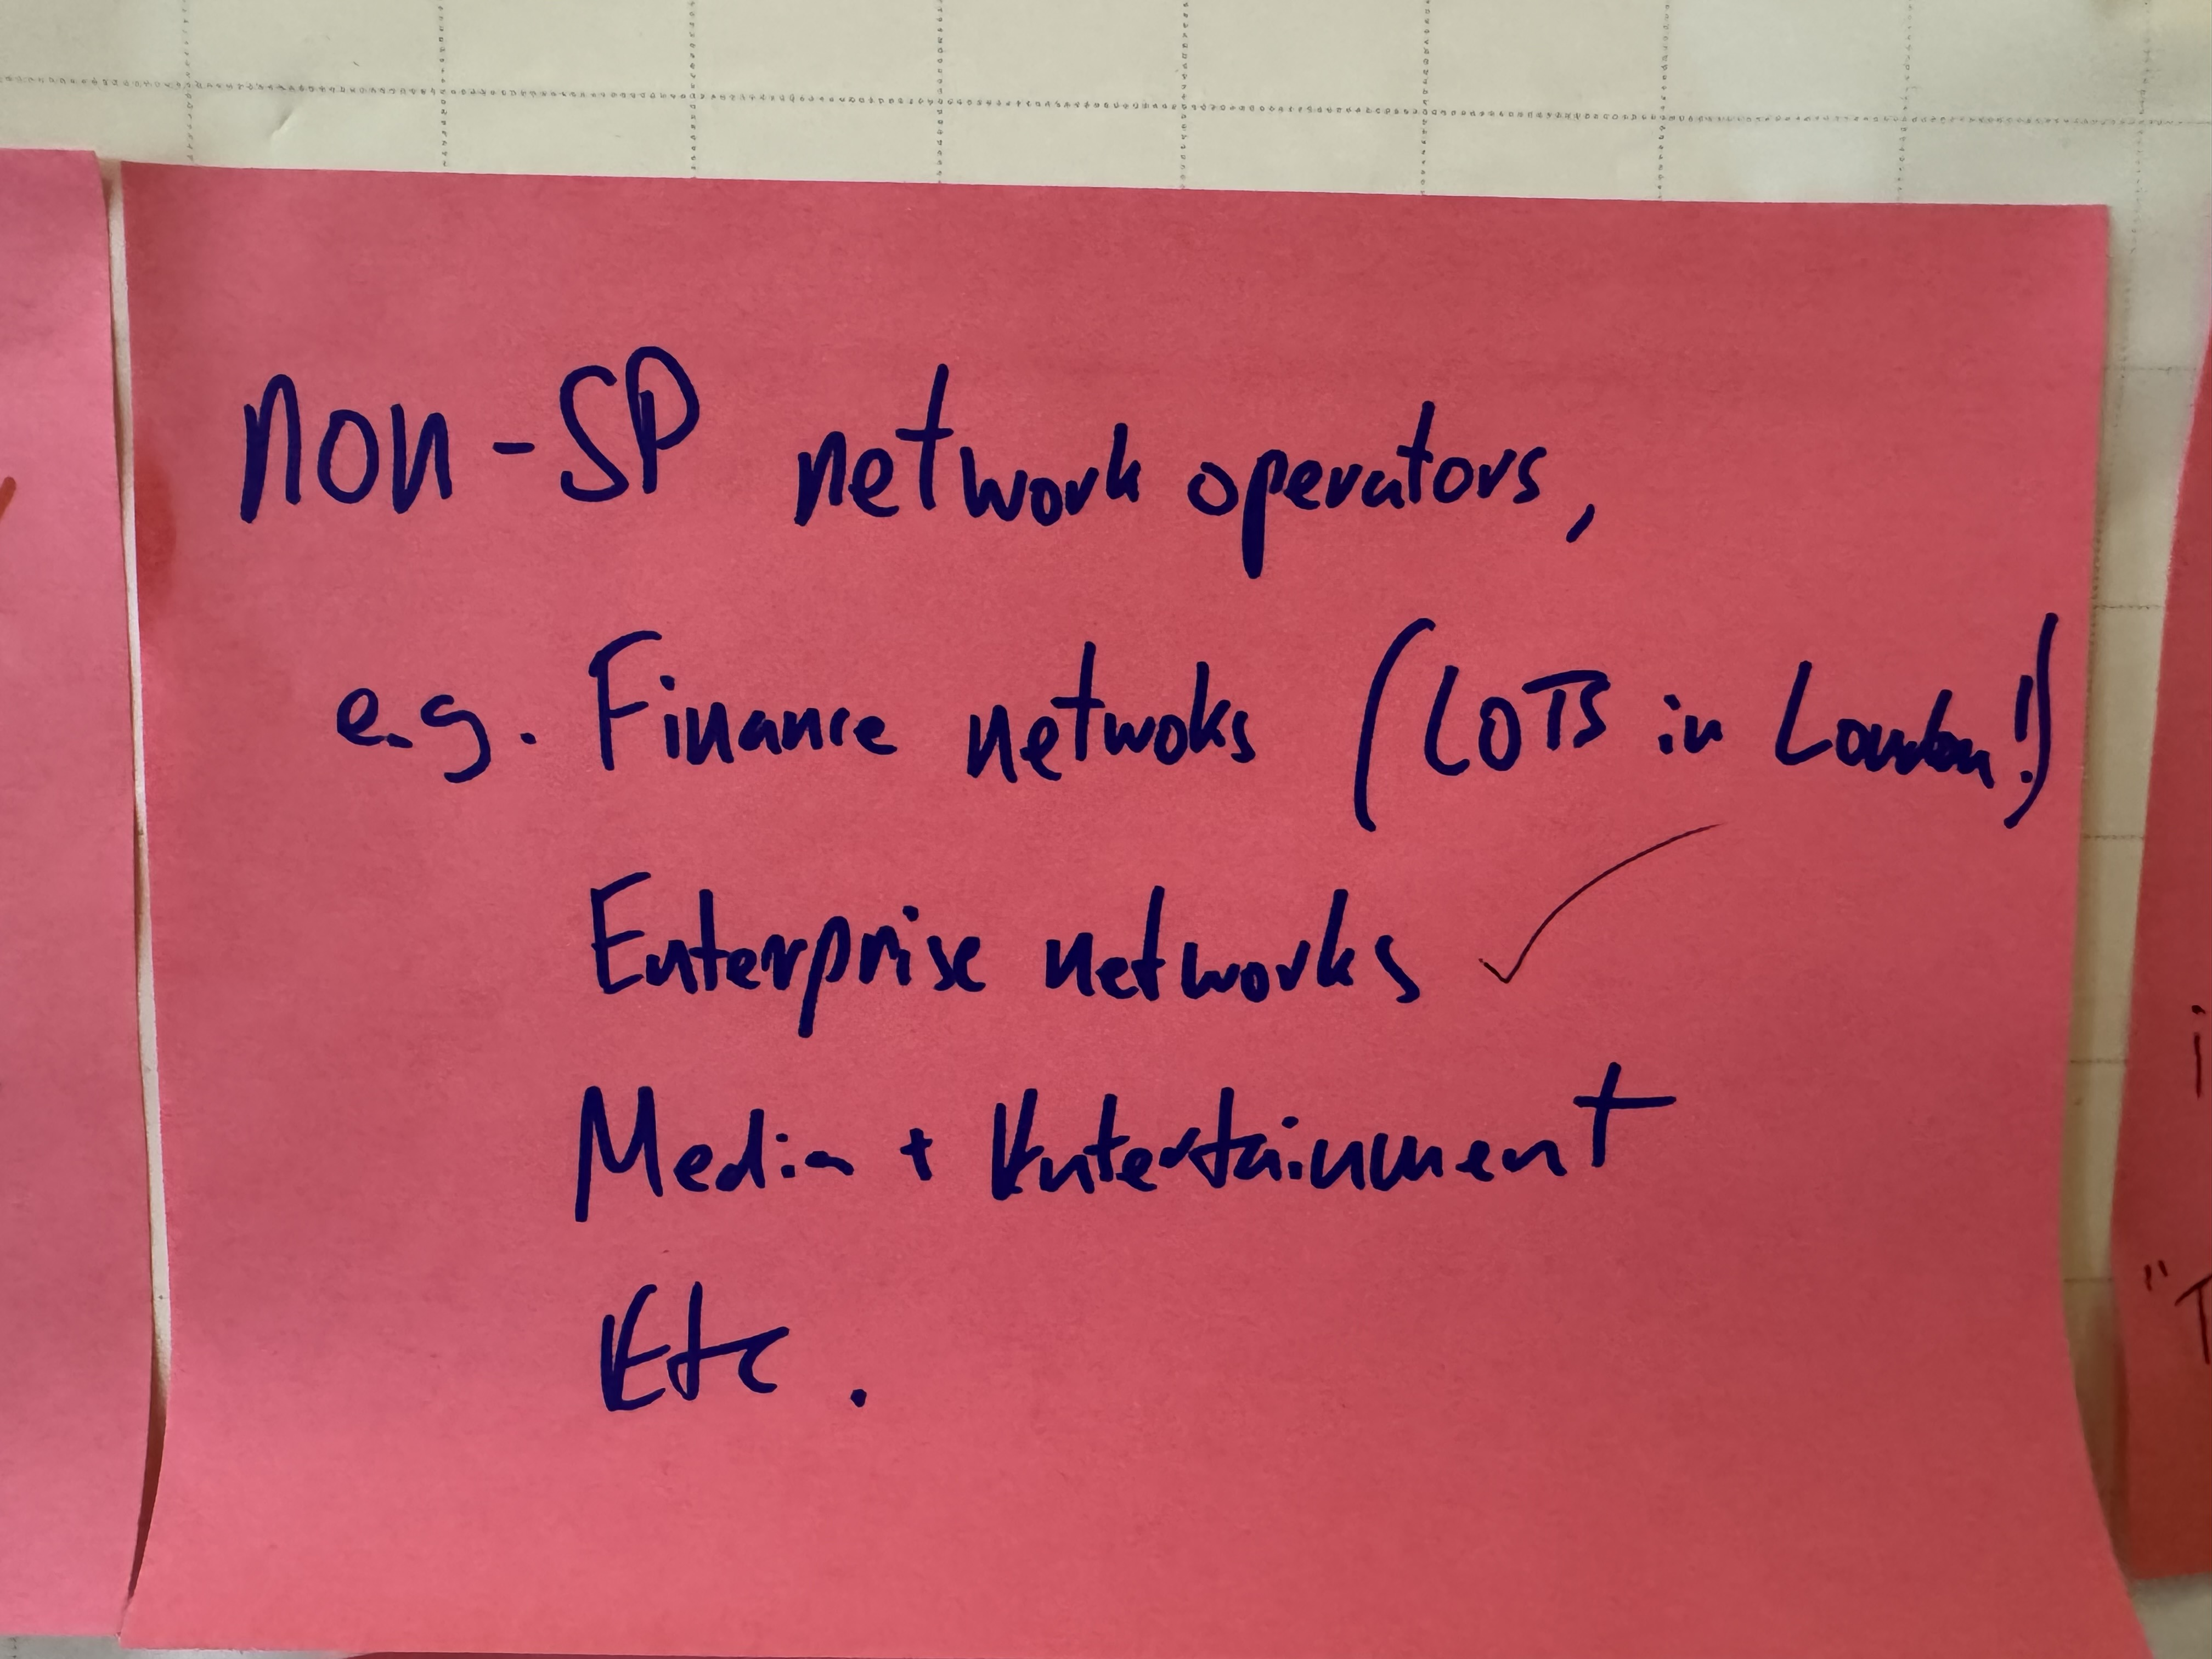 non-SP network operators,
e.g. Finance netwoks (LOTS in London!)
Enterprise networks ✓
Media + Entertainment
Etc.